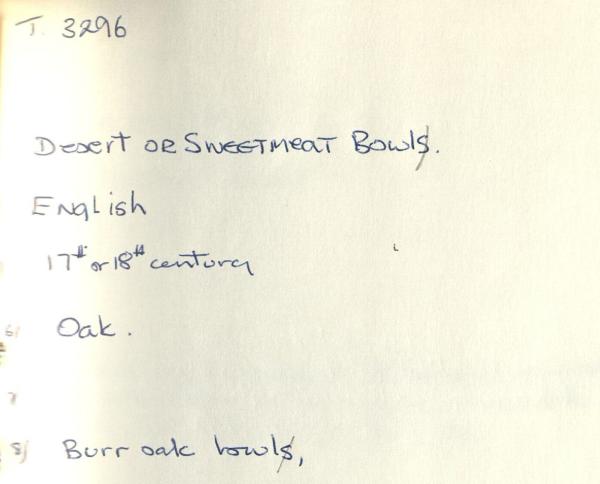 T. 3296
Desert or Sweetmeat Bowls.
English
17th or 18th century
6/ Oak.
7
8/ Burr oak bowls,